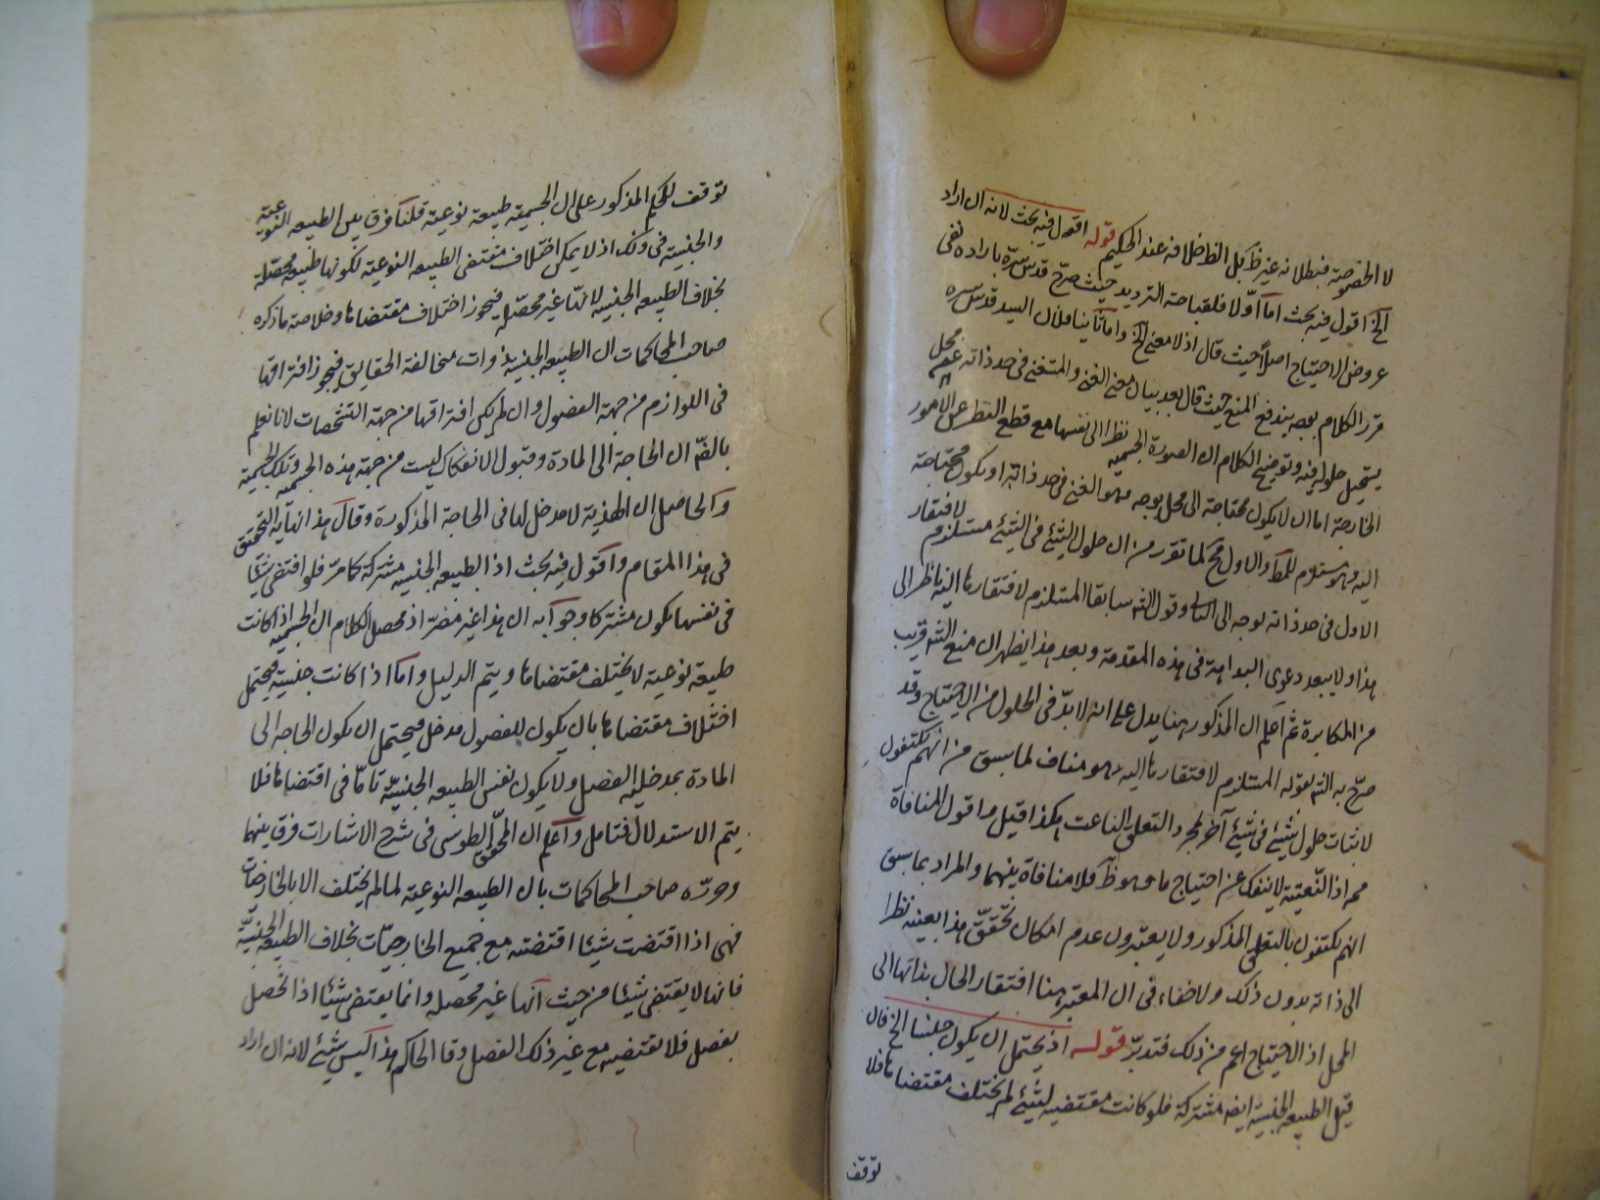 لا الخصوصة فبطلانه غير ظ بل الظ خلافه عند الحكيم قوله اقول فيه بحث لانه ان اراد
الخ اقول فيه بحث اما اولا فلقباحة الترديد حيث صرح قدس سره بارادة نفى
عروض الاحتياج اصلا حيث قال اذ لا معنى الخ واما ثانيا فلان السيد قدس سره
قرر الكلام بوجه يندفع المنع حيث قال بعد بيان معنى الغنى والمستغنى فى حد ذاته عن محل
يستحيل حلوله فيه وتوضيح الكلام ان الصورة الجسمية نظرا الى نفسها مع قطع النظر عن الامور
الخارجة اما ان لا يكون محتاجة الى محل بوجه وهو الغنى فى حد ذاته او يكون محتاجة
اليه وهو مستلزم للمط والاول مح لما تقرر من ان حلول الشئ فى الشئ مستلزم لافتقار
الاول فى حد ذاته لوجه الى الثانى وقول الش سابقا المستلزم لافتقارها اليه ناظر الى
هذا ولا يبعد دعوى البداهة فى هذه المقدمة وبعد هذا يظهر ان منع الش قريب
من المكابرة ثم اعلم ان المذكور هنا يدل على انه لا بد فى الحلول من الاحتياج وقد
صرح به الش بقوله المستلزم لافتقارها اليه وهو مناف لما سبق من انهم يكتفون
لاثبات حلول شئ فى شئ آخر بمجرد التعلق الناعت هكذا قيل واقول المنافاة
مم اذ النعتية لا ينفك عن احتياج ما وهو ظ فلا منافاة بينهما والمراد بما سبق
انهم يكتفون بالتعلق المذكور ولا يعتبرون عدم امكان تحقق هذا بعينه نظرا
الى ذاته بدون ذلك ولا خفاء فى ان المعتبر هنا افتقار الحال بذاتها الى
المحل اذ الاحتياج اعم من ذلك فتدبر قوله اذ يحتمل ان يكون جنسا الخ فان
قيل الطبيعة الجنسية ايضا مشتركة فلو كانت مقتضية لشئ لم يختلف مقتضاها فلا
توقف
توقف للحكم المذكور على ان الجسمية طبيعة نوعية قلنا فرق بين الطبيعة النوعية
والجنسية فى ذلك اذ لا يمكن اختلاف مقتضى الطبيعة النوعية لكونها طبيعة محصلة
بخلاف الطبيعة الجنسية لانها غير محصلة فيجوز اختلاف مقتضاها وخلاصة ما ذكره
صاحب المحاكمات ان الطبيعة الجنسية ذوات متخالفة الحقايق فيجوز افتراقها
فى اللوازم من جهة الفصول وان لم يكن افتراقها من جهة التشخصات لانا نعلم
بالضر ان الحاجة الى المادة وقبول الانفكاك ليست من جهة هذه الجسمية وتلك الجسمية
والحاصل ان الهذية لا مدخل لها فى الحاجة المذكورة وقال هذا نهاية التحقيق
فى هذا المقام واقول فيه بحث اذ الطبيعة الجنسية مشتركة كما مر فلو اقتضى شيئا
فى نفسها يكون مشتركا وجوابه ان هذا غير مضر اذ محصل الكلام ان الجسمية اذا كانت
طبيعة نوعية لا يختلف مقتضاها ويتم الدليل واما اذا كانت جنسية فيحتمل
اختلاف مقتضاها بان يكون للفصول مدخل فيحتمل ان يكون الحاجة الى
المادة بمدخلية الفصل ولا يكون نفس الطبيعة الجنسية تاما فى اقتضائها فلا
يتم الاستدلال فتامل واعلم ان المحقق الطوسى فى شرح الاشارات فرق بينهما
وحرره صاحب المحاكمات بان الطبيعة النوعية لما لم يختلف الا بالخارجيات
فهى اذا اقتضت شيئا اقتضته مع جميع الخارجيات بخلاف الطبيعة الجنسية
فانها لا يقتضى شيئا من حيث انها غير محصلة وانما يقتضى شيئا اذا تحصل
بفصل فلا تقتضيه مع غير ذلك الفصل وقا الحاكم هذا ليس بشئ لانه ان اراد